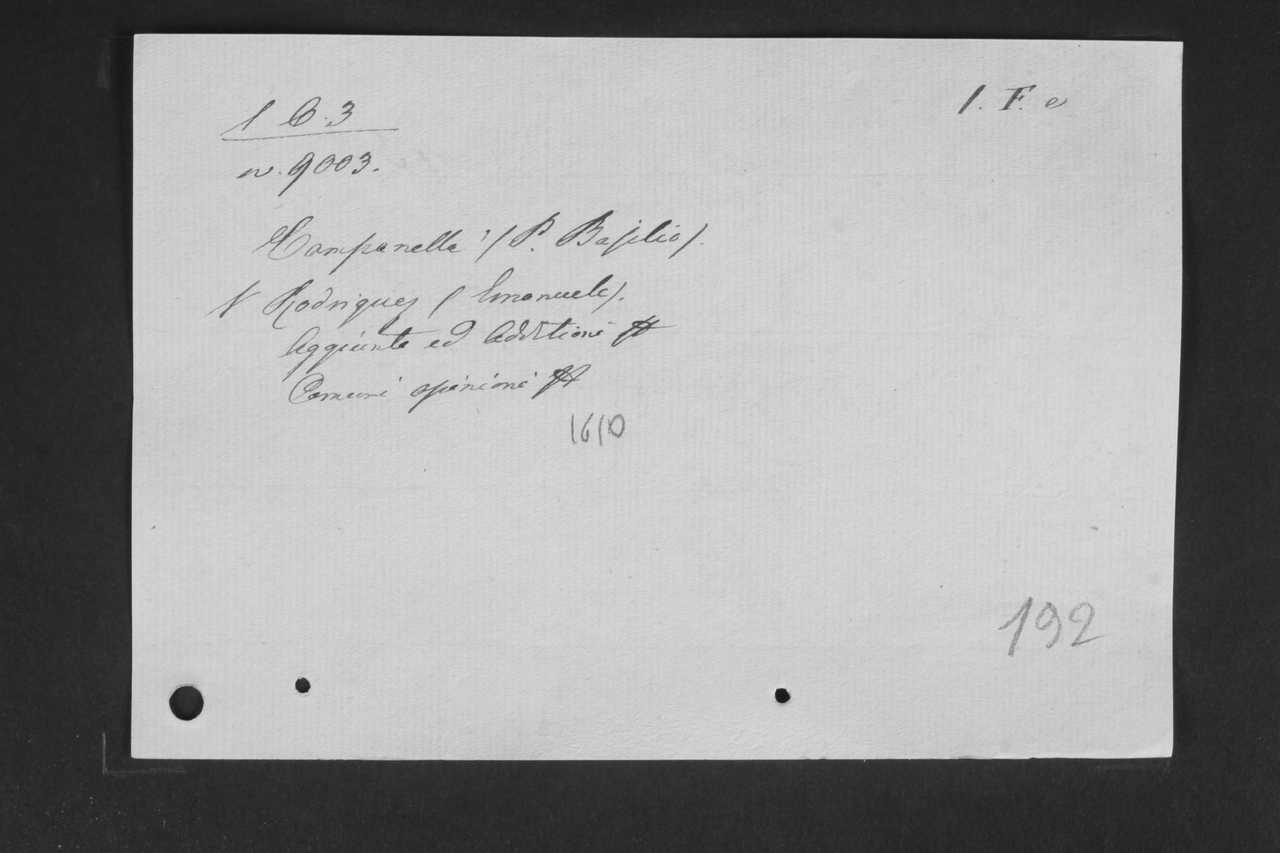 1 B. 3
1. F. e
n. 9003.
Campanella (P. Basilio).
V Rodriguez (Emanuele).
Aggiunte ed Additioni
Comuni opinioni
1610
192